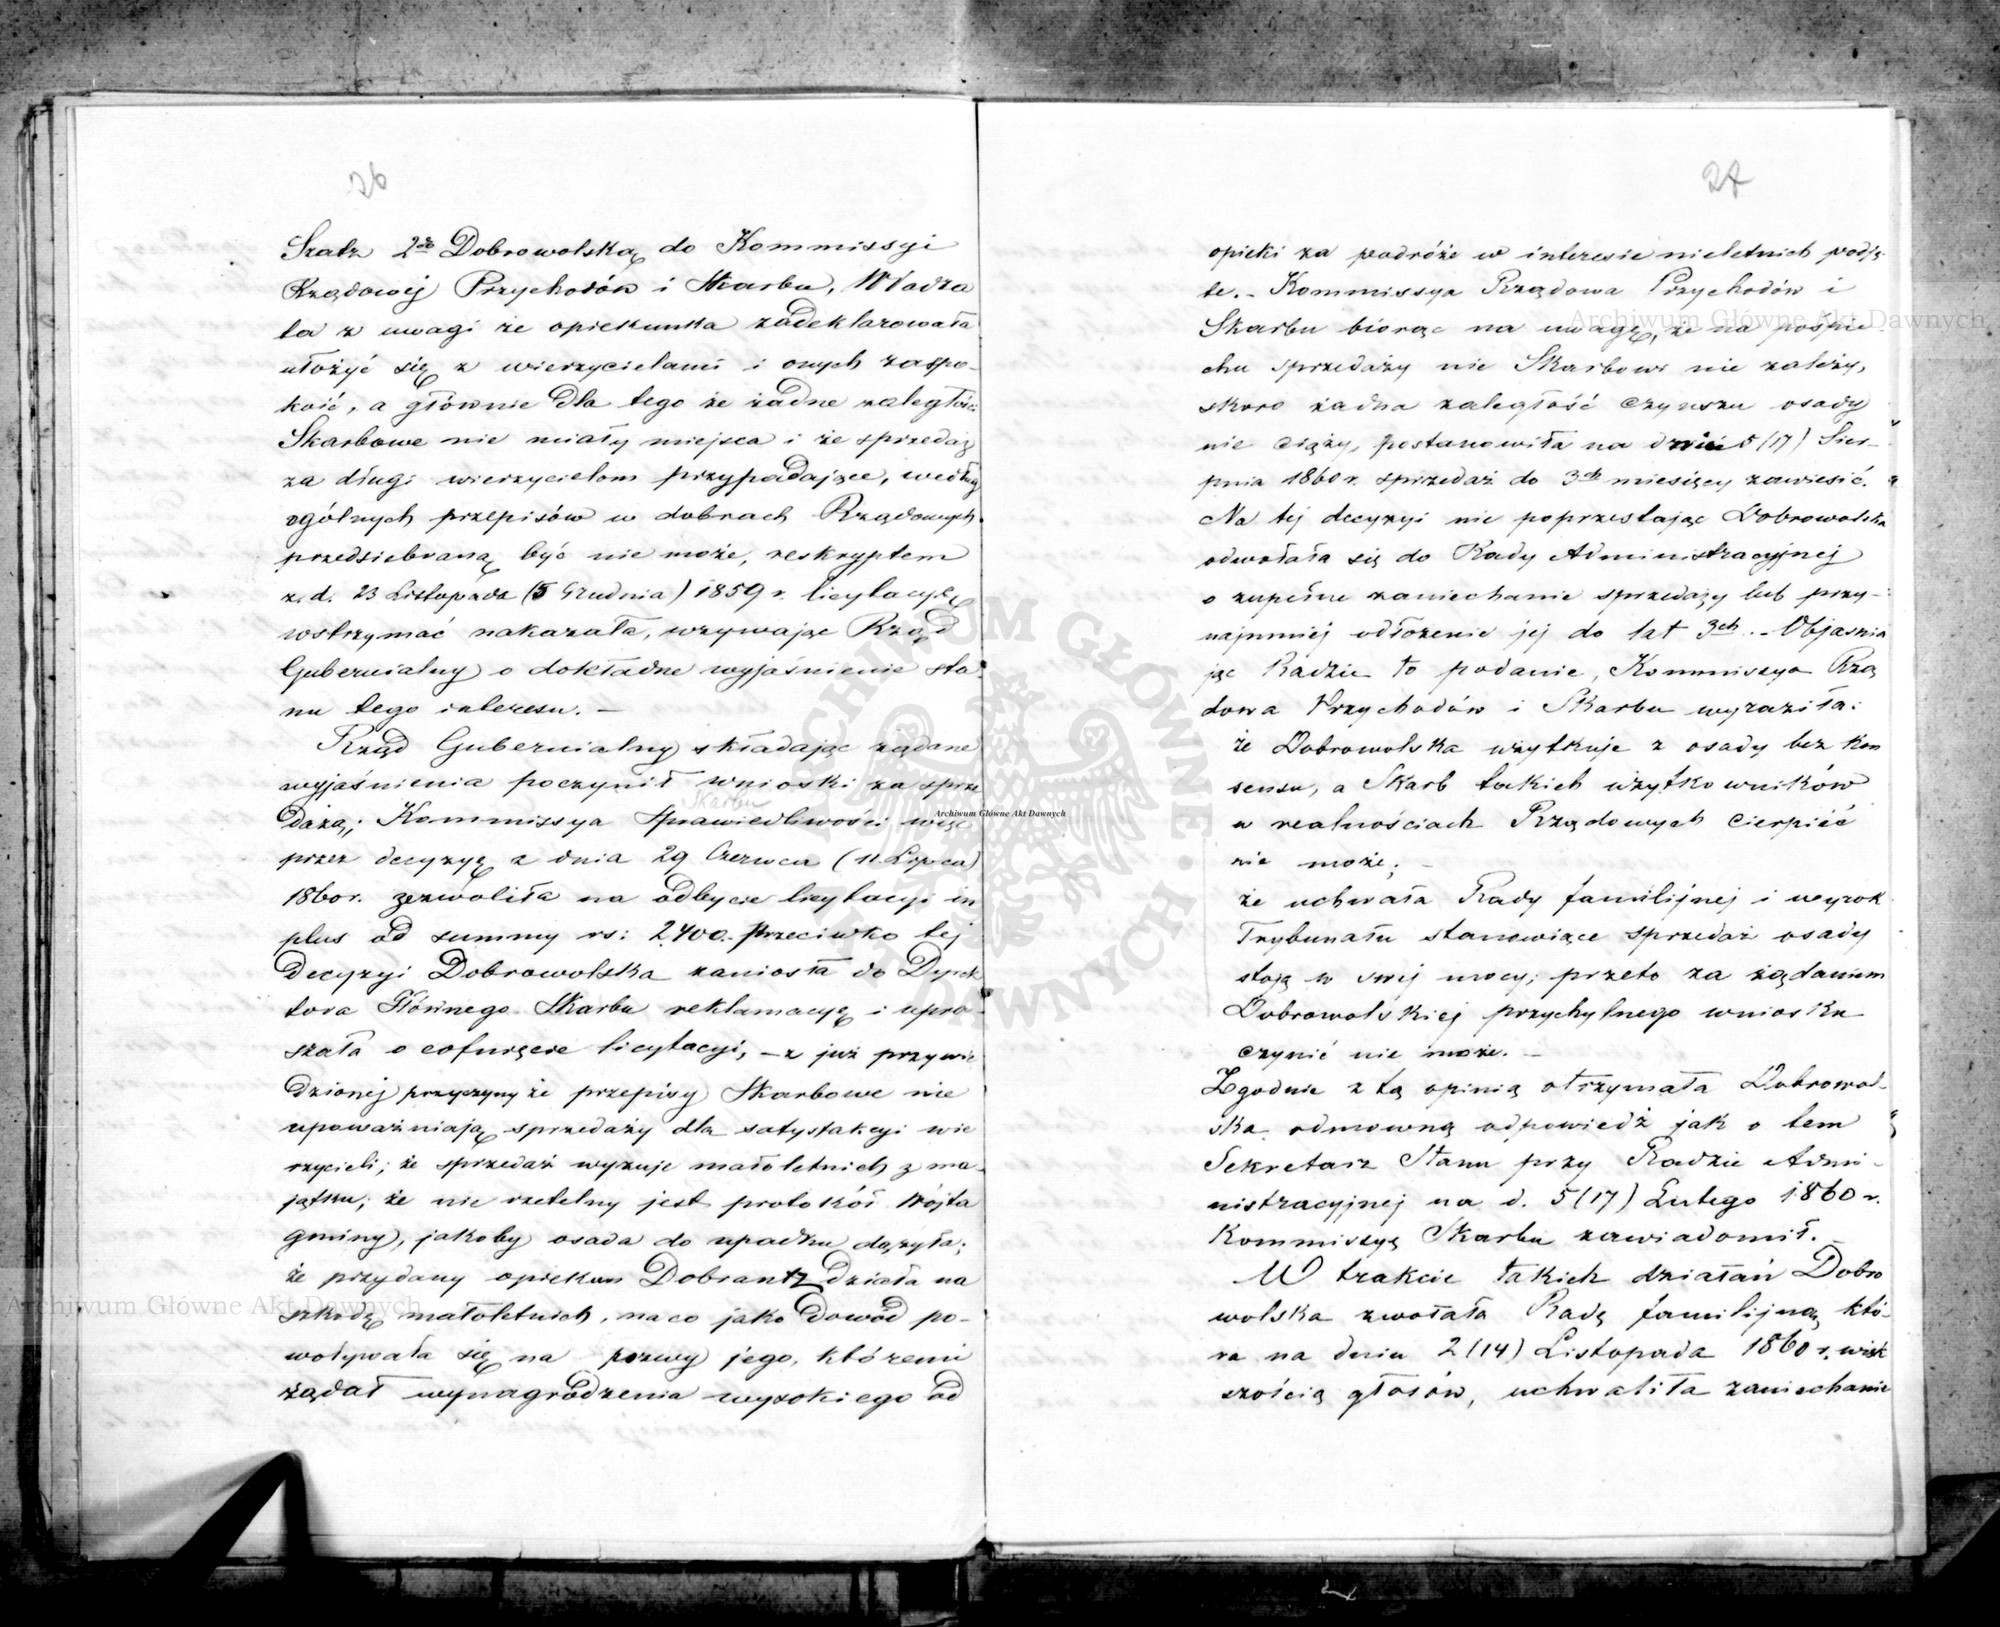 26
Szatz 2do Dobrowolską do Kommissyi
Rządowej Przychodów i Skarbu, Władza
ta z uwagi że opiekunka zadeklarowała
ułożyć się z wierzycielami i onych zaspo-
koić, a głównie dla tego że żadne zaległości
Skarbowe nie miały miejsca i że sprzedaż
za długi wierzycielom przypadające, według
ogólnych przepisów w dobrach Rządowych
przedsiebraną być nie może, reskryptem
z d. 23 Listopada (5 Grudnia) 1859 r. licytacyę
wstrzymać nakazała, wzywając Rząd
Gubernialny o dokładne wyjaśnienie sta-
nu tego interesu. —
Rząd Gubernialny składając żądane
wyjaśnienia poczynił wnioski za sprze
dażą; Kommissya Sprawiedliwości więc
Skarbu
przez decyzyę z dnia 29 Czerwca (11 Lipca)
1860 r. zezwoliła na odbycie licytacyi in
plus od summy rs: 2,400. Przeciwko tej
Decyzyi Dobrowolska zaniosła do Dyrek
tora Głównego Skarbu reklamacyę i upra-
szała o cofnięcie licytacyi, – z już przywie
dzionej przyczyny że przepisy Skarbowe nie
upoważniają sprzedaży dla satysfakcyi wie
rzycieli; że sprzedaż wyzuje małoletnich z ma-
jątku; że nie rzetelny jest protokół Wójta
gminy, jakoby osada do upadku dążyła;
że przydany opiekun Dobrantz działa na
szkodę małoletnich, na co jako dowód po-
woływała się na pozwy jego, któremi
żądał wynagrodzenia wysokiego od
27
opieki za podróże w interesie nieletnich podję-
te. – Kommissya Rządowa Przychodów i
Skarbu biorąc na uwagę, że na pośpie-
chu sprzedaży nic Skarbowi nie zależy,
skoro żadna zaległość czynszu osady
nie ciąży, postanowiła na dniu 5 (17) Sier-
pnia 1860 r. sprzedaż do 3ch miesięcy zawiesić.
Na tej decyzyi nie poprzestając Dobrowolska
odwołała się do Rady Administracyjnej
o zupełne zaniechanie sprzedaży lub przy-
najmniej odłożenie jej do lat 3ch. – Objaśnia
jąc Radzie to podanie, Kommissya Rzą
dowa Przychodów i Skarbu wyraziła:
że Dobrowolska użytkuje z osady bez kon
sensu, a Skarb takich użytkowników
w realnościach Rządowych cierpieć
nie może; —
że uchwała Rady familijnej i wyrok
Trybunału stanowiące sprzedaż osady
stoją w swej mocy; przeto za żądaniem
Dobrowolskiej przychylnego wniosku
czynić nie może. —
Zgodnie z tą opinią otrzymała Dobrowol-
ska odmowną odpowiedź jak o tem
Sekretarz Stanu przy Radzie Admi-
nistracyjnej na d. 5 (17) Lutego 1860 r.
Kommissyę Skarbu zawiadomił. —
W trakcie takich działań Dobro
wolska zwołała Radę familijną, któ-
ra na dniu 2 (14) Listopada 1860 r. więk
szością głosów, uchwaliła zaniechanie
Archiwum Główne Akt Dawnych
Archiwum Główne Akt Dawnych
Archiwum Główne Akt Dawnych
ARCHIWUM GŁÓWNE AKT DAWNYCH